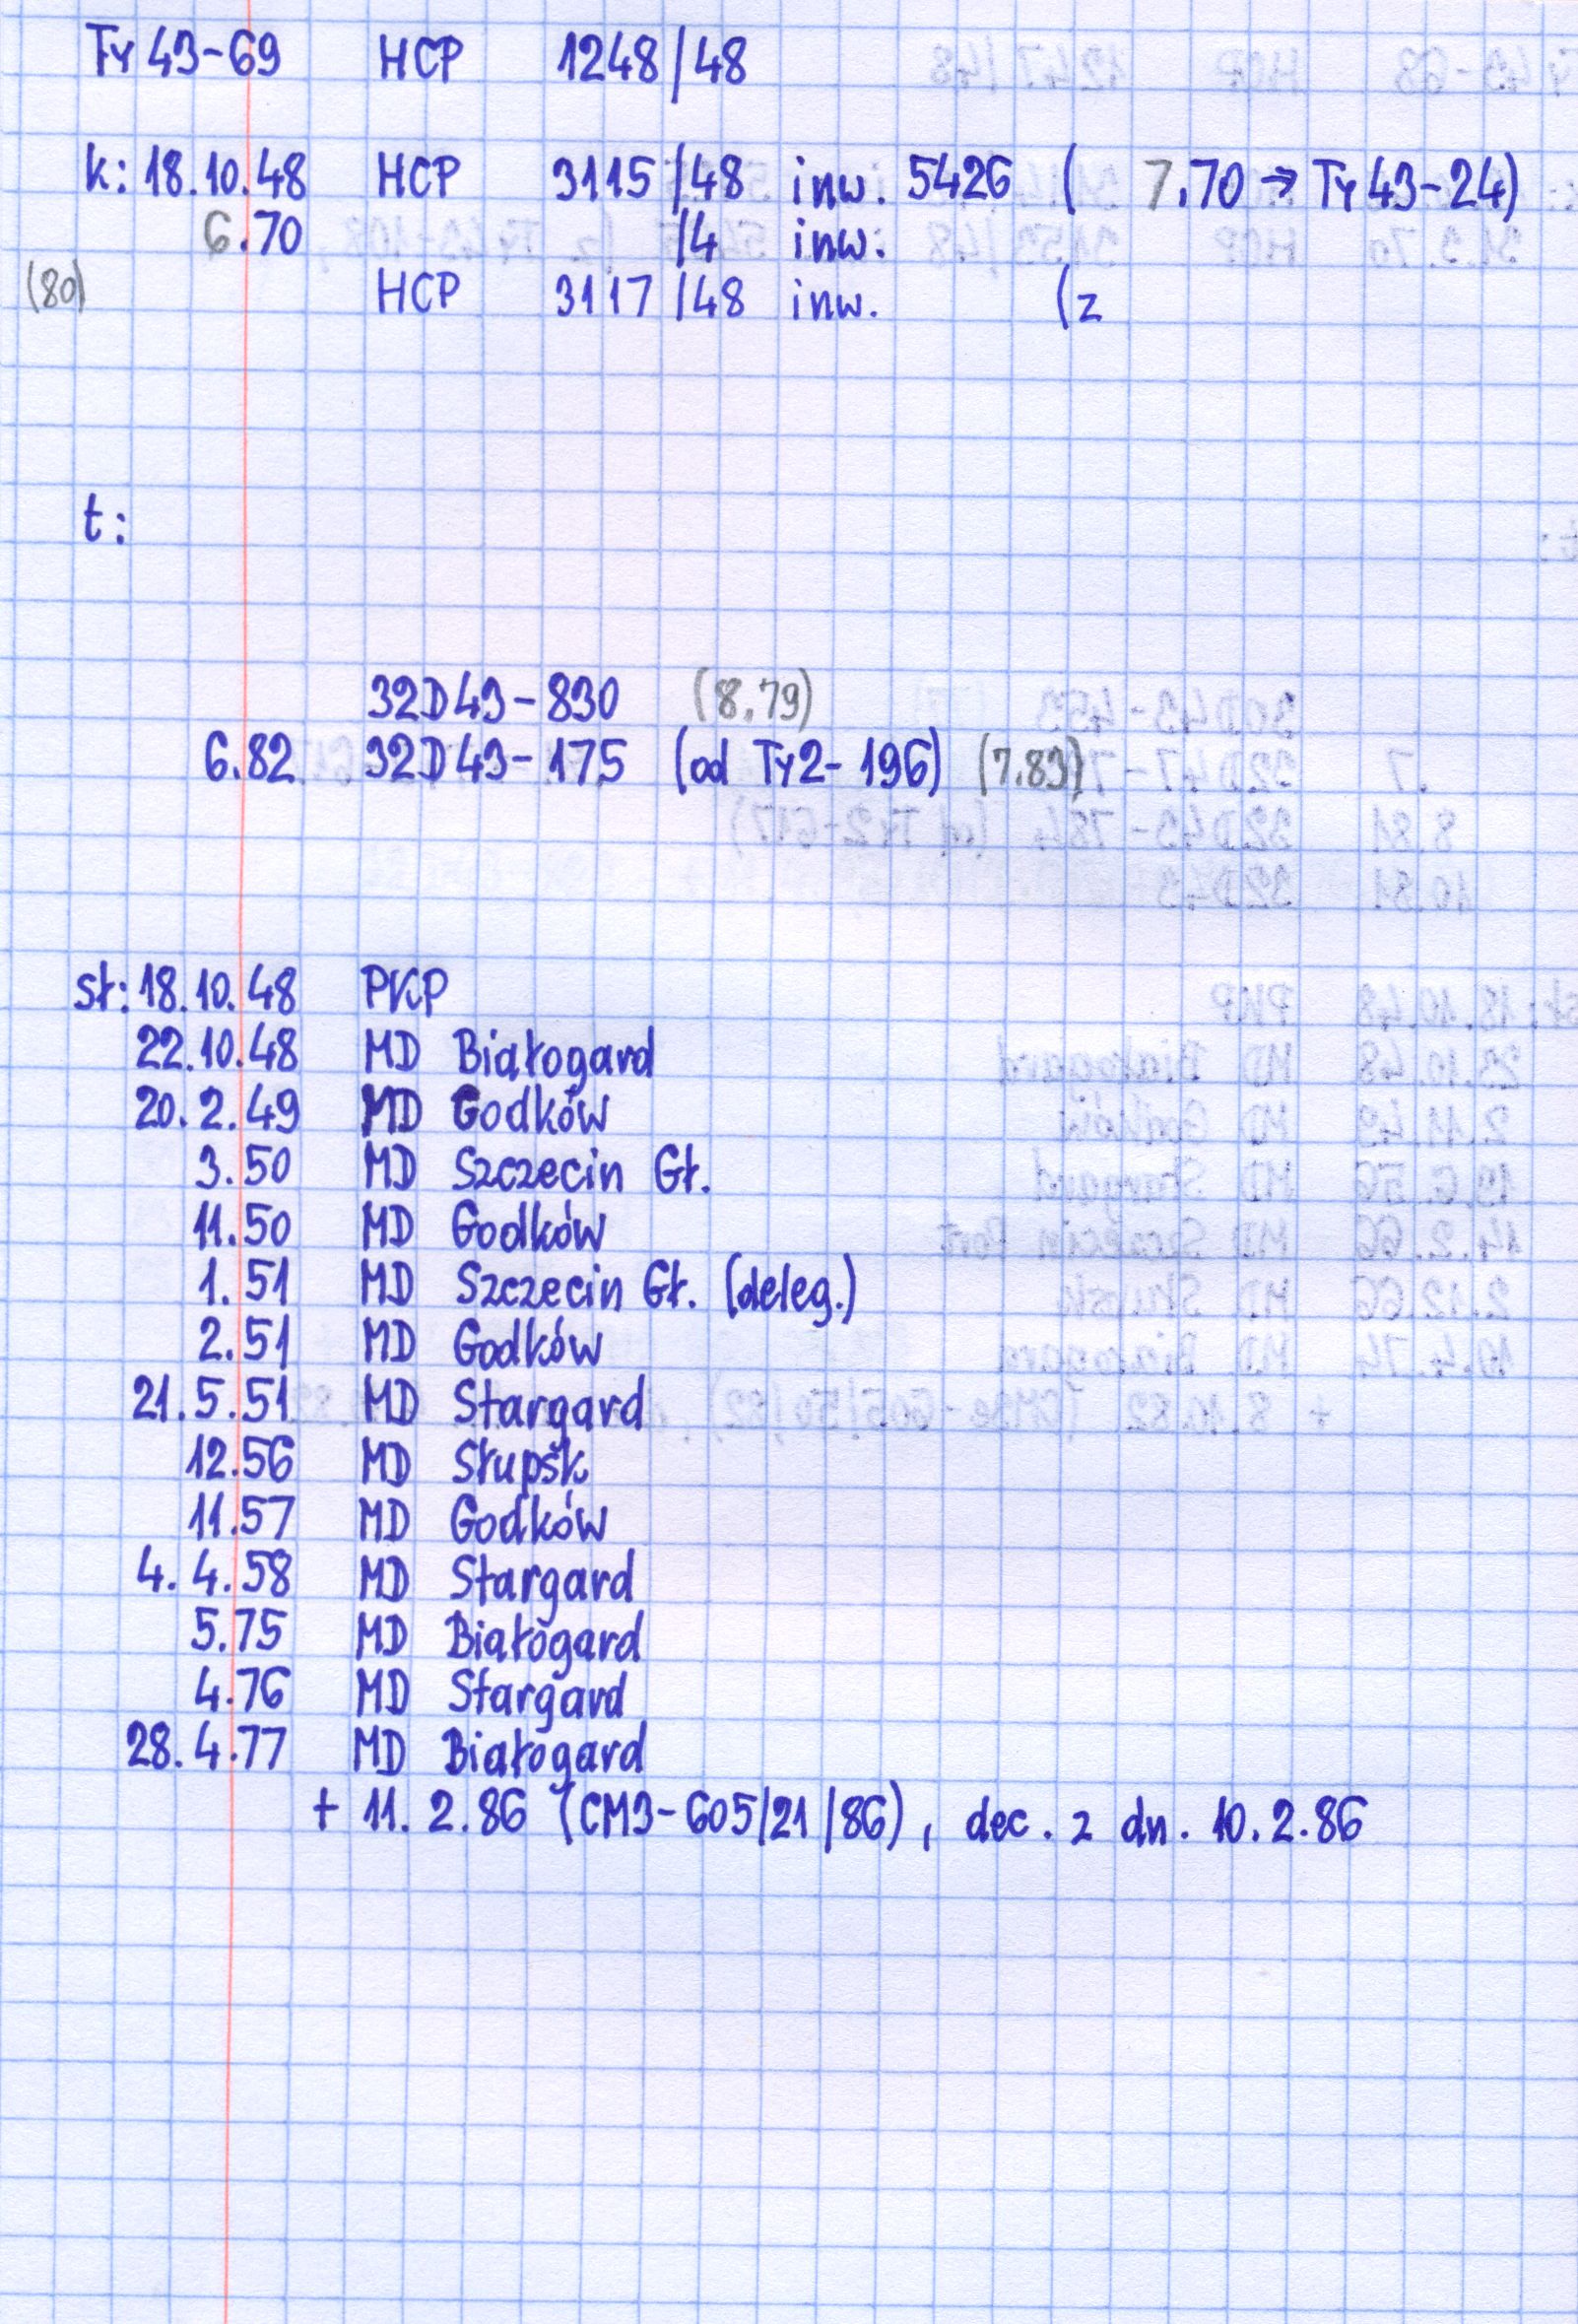 Ty43-69 HCP 1248/48
k: 18.10.48 HCP 3115/48 inw. 5426 ( 7.70 → Ty43-24)
6.70 /4 inw.
(80) HCP 3117/48 inw. (z
t:
32D43-830 (8.79)
6.82 32D43-175 (od Ty2-196) (7.83)
st: 18.10.48 PKP
22.10.48 MD Białogard
20.2.49 MD Godków
3.50 MD Szczecin Gł.
11.50 MD Godków
1.51 MD Szczecin Gł. (deleg.)
2.51 MD Godków
21.5.51 MD Stargard
12.56 MD Słupsk
11.57 MD Godków
4.4.58 MD Stargard
5.75 MD Białogard
4.76 MD Stargard
28.4.77 MD Białogard
+ 11.2.86 (CM3-605/21/86), dec. z dn. 10.2.86